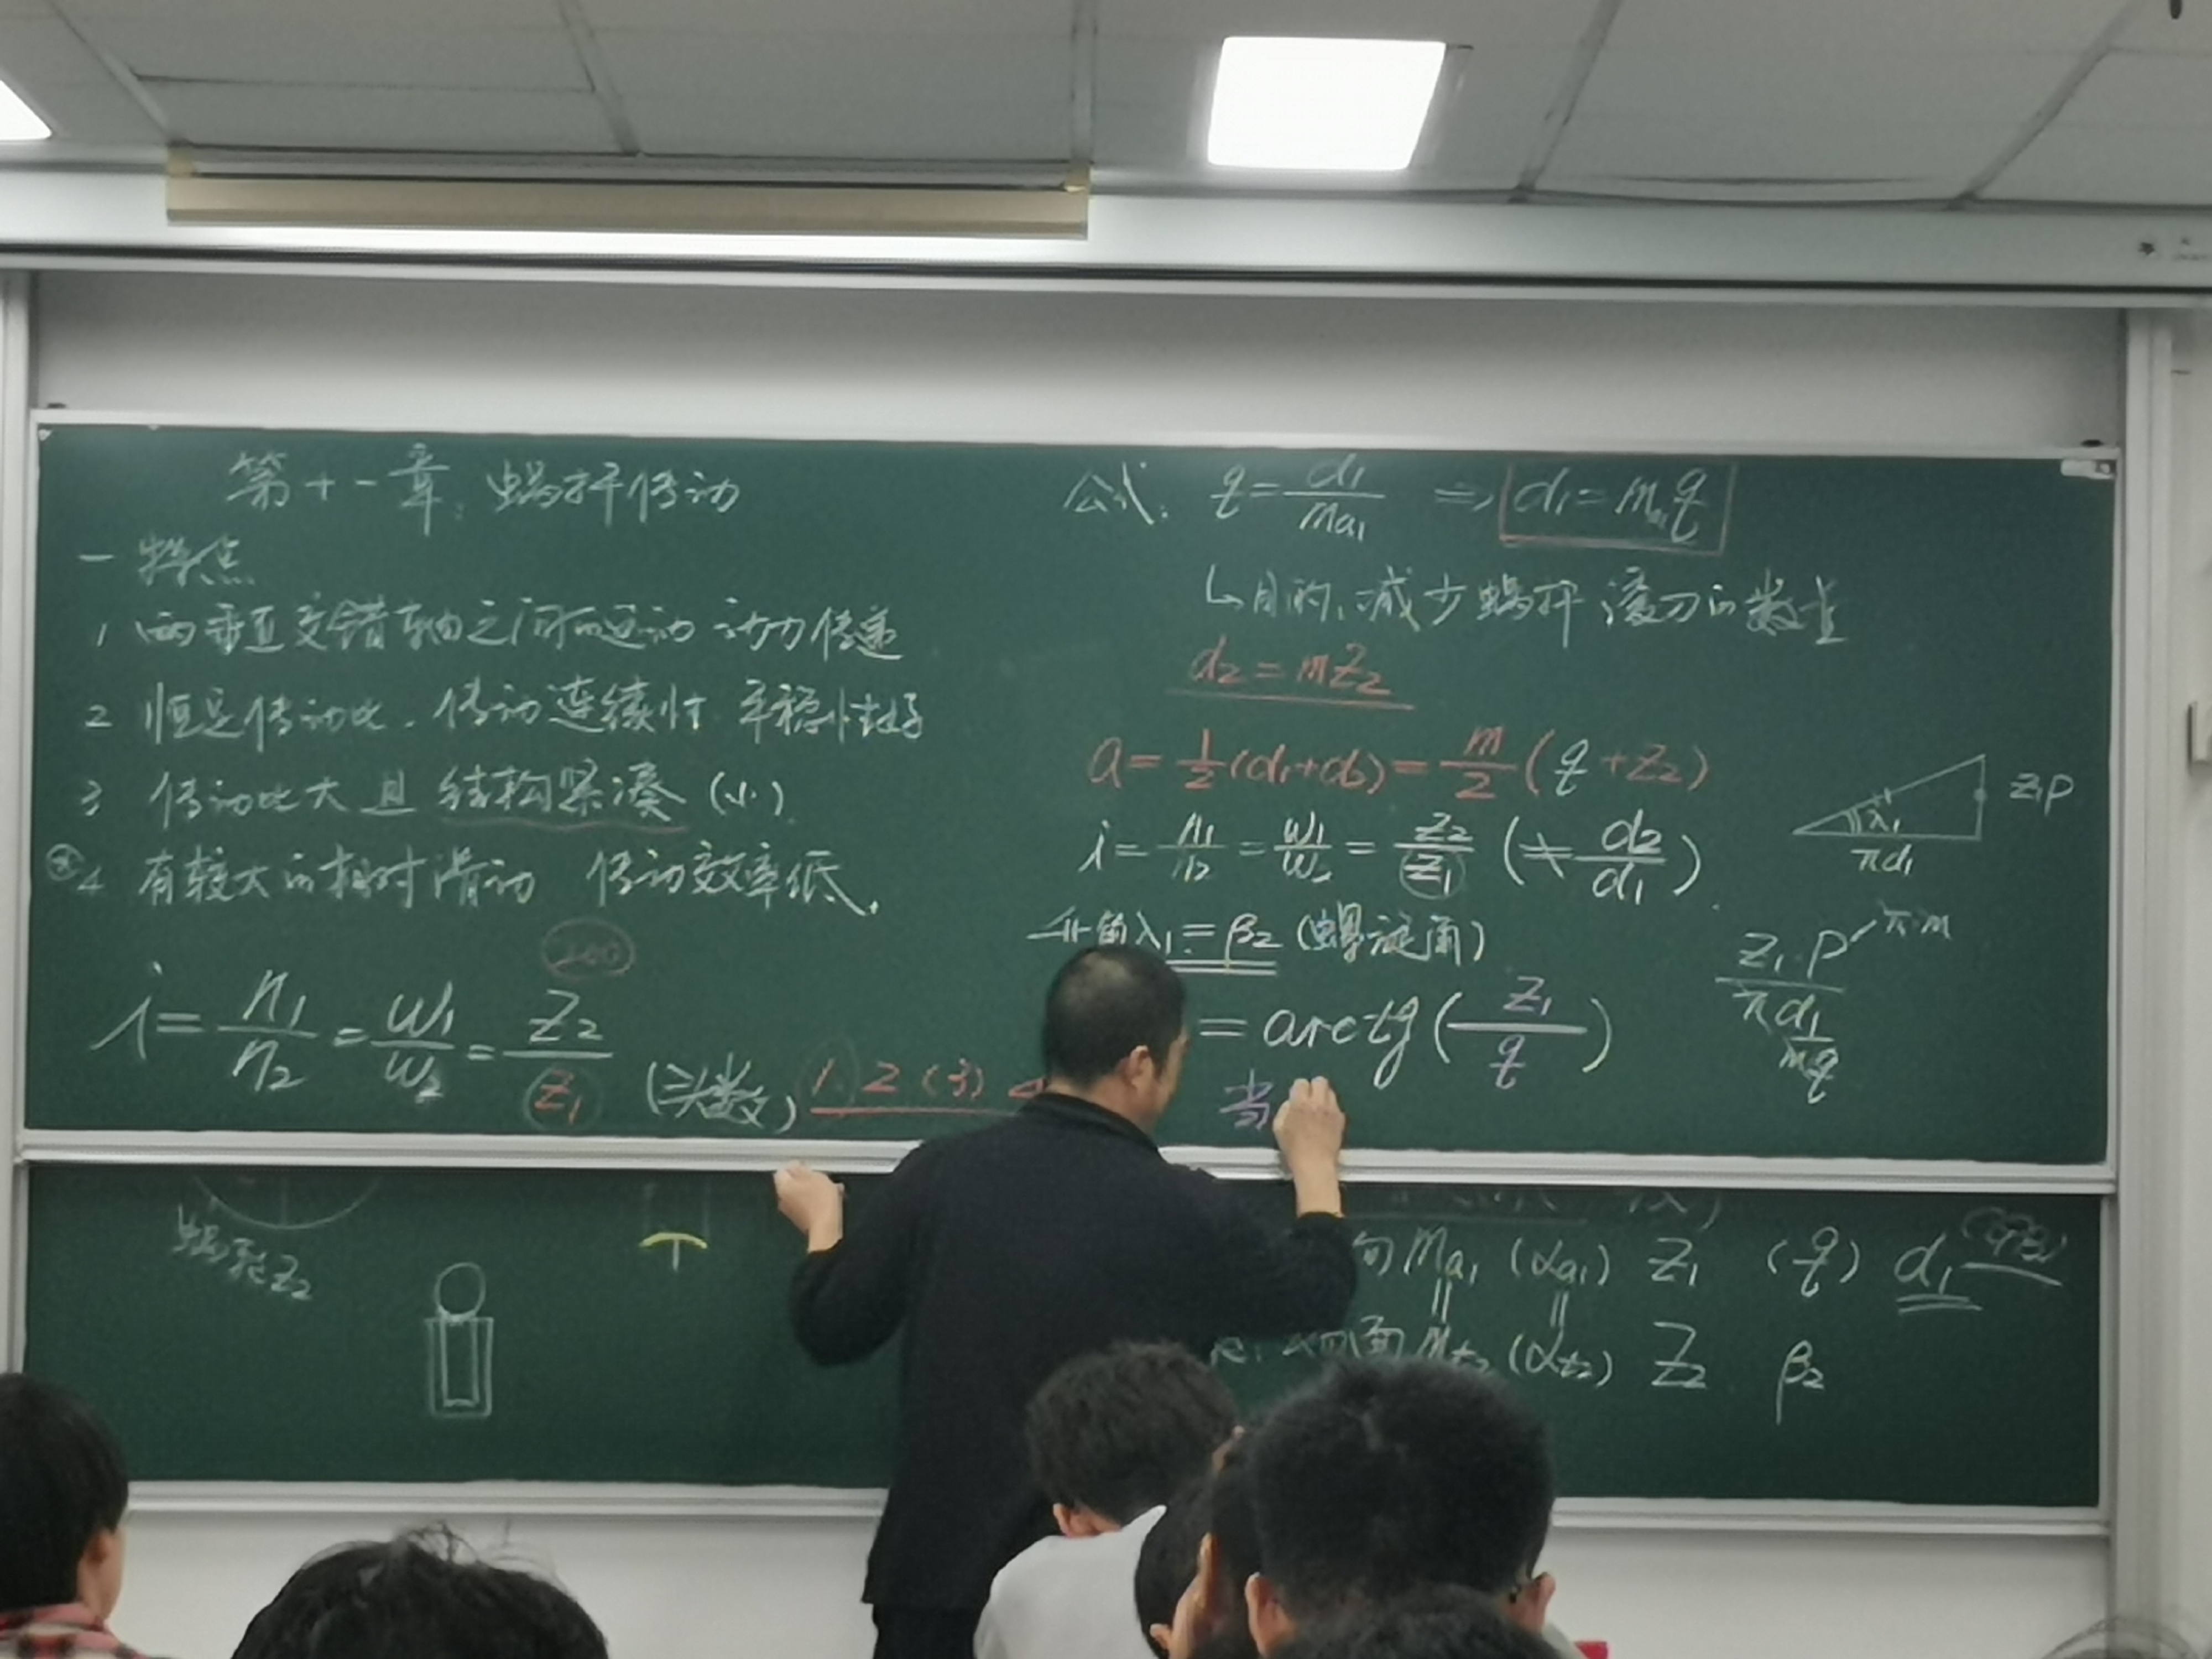 第十一章: 蜗杆传动
一 特点
1 两垂直交错轴之间的运动 动力传递
2 恒定传动比. 传动连续性 平稳性好
3 传动比大 且 结构紧凑 (小).
④ 4 有较大的相对滑动 传动效率低.
200
i = n₁/n₂ = ω₁/ω₂ = Z₂/Z₁ (头数) 1. 2 (3) 4
公式: q = d₁/ma₁ ⇒ d₁ = ma₁q
↳ 目的: 减少蜗杆滚刀的数量
d₂ = mZ₂
a = 1/2 (d₁+d₂) = m/2 (q+Z₂)
i = n₁/n₂ = ω₁/ω₂ = Z₂/Z₁ (≠ d₂/d₁).
升角λ₁ = β₂ (螺旋角)
= arctg(Z₁/q)
当
λ₁ Z₁P
πd₁
Z₁·P π·m
πd₁
mq
蜗轮Z₂
向 ma₁ (αa₁) Z₁ (q) d₁
|| ||
面 mt₂ (αt₂) Z₂ β₂